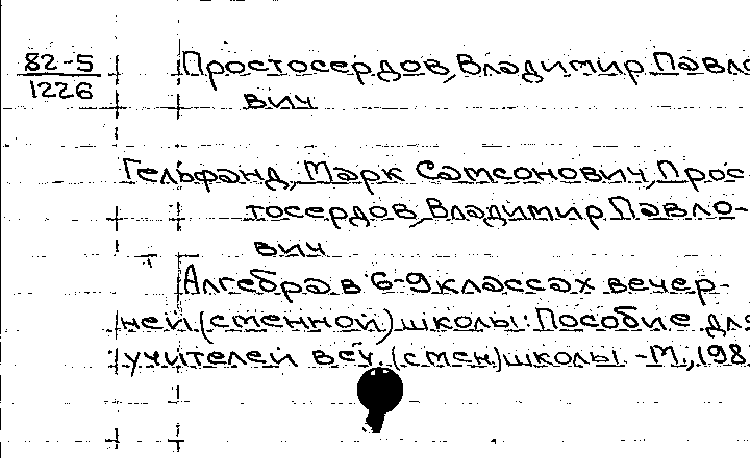 82-5
1226
Простосердов, Владимир Павло
вич
Гельфанд, Марк Самсонович, Прос
тосердов, Владимир Павло-
вич
Алгебра в 6-9 классах вечер-
ней (сменной) школы: Пособие для
учителей веч. (смен) школы. -М., 198